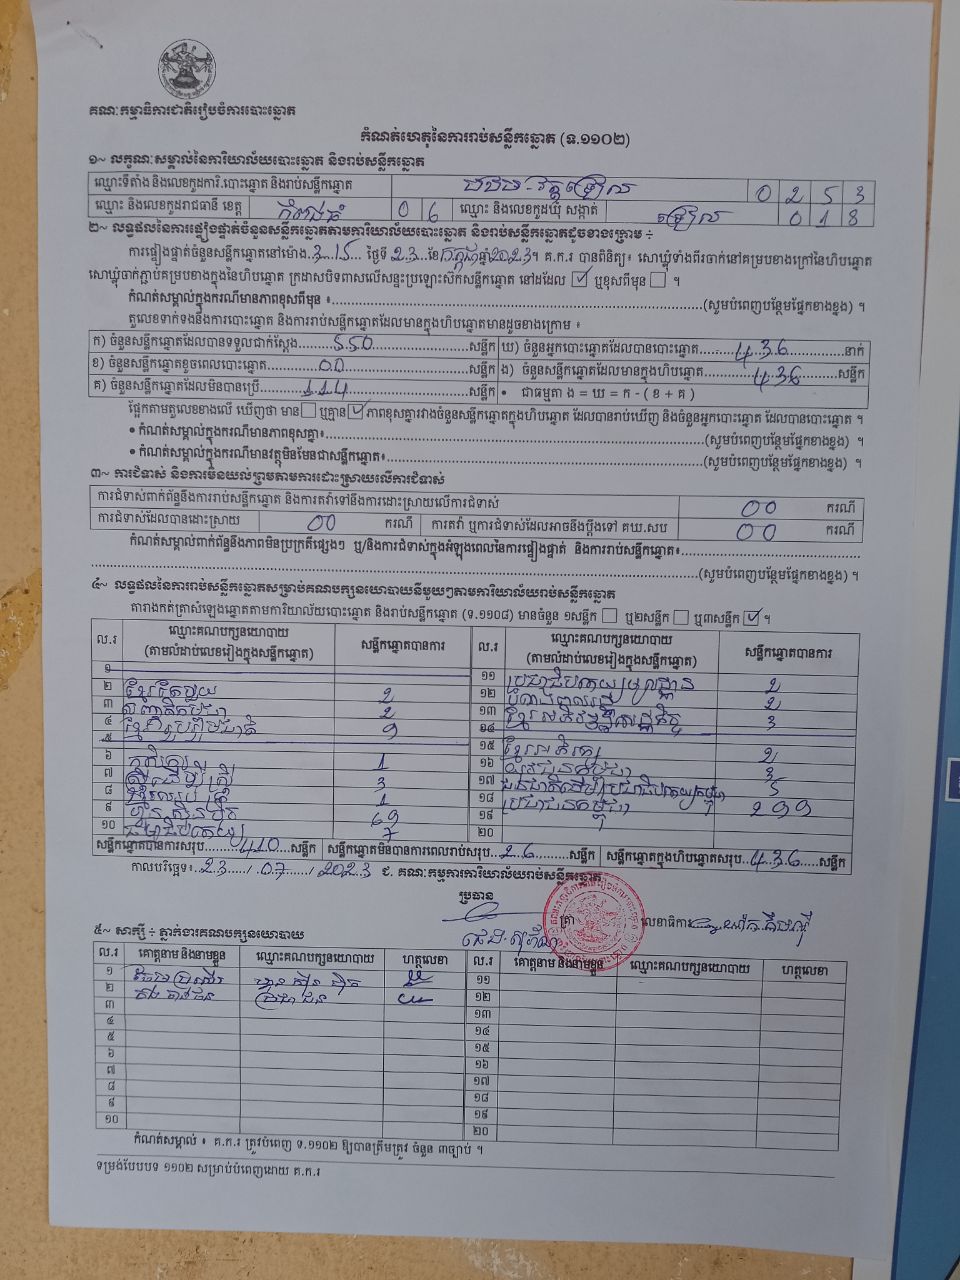 គណៈកម្មាធិការជាតិរៀបចំការបោះឆ្នោត
កំណត់ហេតុនៃការរាប់សន្លឹកឆ្នោត (ទ.១១០២)
១~ លក្ខណៈសម្គាល់នៃការិយាល័យបោះឆ្នោត និងរាប់សន្លឹកឆ្នោត
ឈ្មោះទីតាំង និងលេខកូដការិ.បោះឆ្នោត និងរាប់សន្លឹកឆ្នោត 0 2 5 3
ឈ្មោះ និងលេខកូដរាជធានី ខេត្ត កំពង់ធំ 0 6 ឈ្មោះ និងលេខកូដឃុំ សង្កាត់ ទ្រៀល 0 1 8
២~ លទ្ធផលនៃការផ្ទៀងផ្ទាត់ចំនួនសន្លឹកឆ្នោតតាមការិយាល័យបោះឆ្នោត និងរាប់សន្លឹកឆ្នោតដូចខាងក្រោម ÷
ការផ្ទៀងផ្ទាត់ចំនួនសន្លឹកឆ្នោតនៅម៉ោង 3 15 ថ្ងៃទី 23 ខែ កក្កដា ឆ្នាំ 2023។ គ.ក.រ បានពិនិត្យ៖ សោឃ្មុំទាំងពីរចាក់នៅគម្របខាងក្រៅនៃហិបឆ្នោត
សោឃ្មុំចាក់ភ្ជាប់គម្របខាងក្នុងនៃហិបឆ្នោត ក្រដាសបិទពាសលើសន្ទះប្រឡោះស៊កសន្លឹកឆ្នោត នៅដដែល ☑ ឬខុសពីមុន ☐ ។
កំណត់សម្គាល់ក្នុងករណីមានភាពខុសពីមុន ៖ (សូមបំពេញបន្ថែមផ្នែកខាងខ្នង) ។
តួលេខទាក់ទងនឹងការបោះឆ្នោត និងការរាប់សន្លឹកឆ្នោតដែលមានក្នុងហិបឆ្នោតមានដូចខាងក្រោម ៖
ក) ចំនួនសន្លឹកឆ្នោតដែលបានទទួលជាក់ស្តែង 550 សន្លឹក ឃ) ចំនួនអ្នកបោះឆ្នោតដែលបានបោះឆ្នោត 436 នាក់
ខ) ចំនួនសន្លឹកឆ្នោតខូចពេលបោះឆ្នោត 00 សន្លឹក ង) ចំនួនសន្លឹកឆ្នោតដែលមានក្នុងហិបឆ្នោត 436 សន្លឹក
គ) ចំនួនសន្លឹកឆ្នោតដែលមិនបានប្រើ 114 សន្លឹក • ជាធម្មតា ង = ឃ = ក - ( ខ + គ )
ផ្អែកតាមតួលេខខាងលើ ឃើញថា មាន ☐ ឬគ្មាន ☑ ភាពខុសគ្នារវាងចំនួនសន្លឹកឆ្នោតក្នុងហិបឆ្នោត ដែលបានរាប់ឃើញ និងចំនួនអ្នកបោះឆ្នោត ដែលបានបោះឆ្នោត ។
• កំណត់សម្គាល់ក្នុងករណីមានភាពខុសគ្នា៖ (សូមបំពេញបន្ថែមផ្នែកខាងខ្នង) ។
• កំណត់សម្គាល់ក្នុងករណីមានវត្ថុមិនមែនជាសន្លឹកឆ្នោត៖ (សូមបំពេញបន្ថែមផ្នែកខាងខ្នង) ។
៣~ ការជំទាស់ និងការមិនយល់ព្រមតាមការដោះស្រាយលើការជំទាស់
ការជំទាស់ពាក់ព័ន្ធនឹងការរាប់សន្លឹកឆ្នោត និងការតវ៉ាទៅនឹងការដោះស្រាយលើការជំទាស់ 00 ករណី
ការជំទាស់ដែលបានដោះស្រាយ 00 ករណី ការតវ៉ា ឬការជំទាស់ដែលអាចនឹងប្តឹងទៅ គឃ.សប 00 ករណី
កំណត់សម្គាល់ពាក់ព័ន្ធនឹងភាពមិនប្រក្រតីផ្សេងៗ ឬ/និងការជំទាស់ក្នុងអំឡុងពេលនៃការផ្ទៀងផ្ទាត់ និងការរាប់សន្លឹកឆ្នោត៖
(សូមបំពេញបន្ថែមផ្នែកខាងខ្នង) ។
៤~ លទ្ធផលនៃការរាប់សន្លឹកឆ្នោតសម្រាប់គណបក្សនយោបាយនីមួយៗតាមការិយាល័យរាប់សន្លឹកឆ្នោត
តារាងកត់ត្រាសំឡេងឆ្នោតតាមការិយាល័យបោះឆ្នោត និងរាប់សន្លឹកឆ្នោត (ទ.១១០៨) មានចំនួន ១សន្លឹក ☐ ឬ២សន្លឹក ☐ ឬ៣សន្លឹក ☑ ។
ល.រ ឈ្មោះគណបក្សនយោបាយ (តាមលំដាប់លេខរៀងក្នុងសន្លឹកឆ្នោត) សន្លឹកឆ្នោតបានការ ល.រ ឈ្មោះគណបក្សនយោបាយ (តាមលំដាប់លេខរៀងក្នុងសន្លឹកឆ្នោត) សន្លឹកឆ្នោតបានការ
១ ១១ ប្រជាធិបតេយ្យមូលដ្ឋាន 2
២ ខ្មែរតែមួយ 2 ១២ 2
៣ សញ្ជាតិកម្ពុជា 2 ១៣ ខ្មែរអភិវឌ្ឍន៍សេដ្ឋកិច្ច 3
៤ ខ្មែររួបរួមជាតិ 9 ១៤
៥ ១៥ ខ្មែរអភិរក្ស 2
៦ កសិករ 1 ១៦ យុវជនកម្ពុជា 3
៧ ស្ត្រីដើម្បីស្ត្រី 3 ១៧ ជនជាតិដើមប្រជាធិបតេយ្យកម្ពុជា 5
៨ 1 ១៨ ប្រជាជនកម្ពុជា 299
៩ ហ៊្វុនស៊ិនប៉ិច 69 ១៩
១០ ធម្មាធិបតេយ្យ 7 ២០
សន្លឹកឆ្នោតបានការសរុប 410 សន្លឹក សន្លឹកឆ្នោតមិនបានការពេលរាប់សរុប 26 សន្លឹក សន្លឹកឆ្នោតក្នុងហិបឆ្នោតសរុប 436 សន្លឹក
កាលបរិច្ឆេទ៖ 23 / 07 / 2023 ជ. គណៈកម្មការការិយាល័យរាប់សន្លឹកឆ្នោត
ប្រធាន
ត្រា លេខាធិការ
៥~ សាក្សី ÷ ភ្នាក់ងារគណបក្សនយោបាយ
ល.រ គោត្តនាម និងនាមខ្លួន ឈ្មោះគណបក្សនយោបាយ ហត្ថលេខា ល.រ គោត្តនាម និងនាមខ្លួន ឈ្មោះគណបក្សនយោបាយ ហត្ថលេខា
១ ហ្វ៊ុន ស៊ីន ប៉ិច ១១
២ ប្រជា ជន ១២
៣ ១៣
៤ ១៤
៥ ១៥
៦ ១៦
៧ ១៧
៨ ១៨
៩ ១៩
១០ ២០
កំណត់សម្គាល់ ៖ គ.ក.រ ត្រូវបំពេញ ទ.១១០២ ឱ្យបានត្រឹមត្រូវ ចំនួន ៣ច្បាប់ ។
ទម្រង់បែបបទ ១១០២ សម្រាប់បំពេញដោយ គ.ក.រ